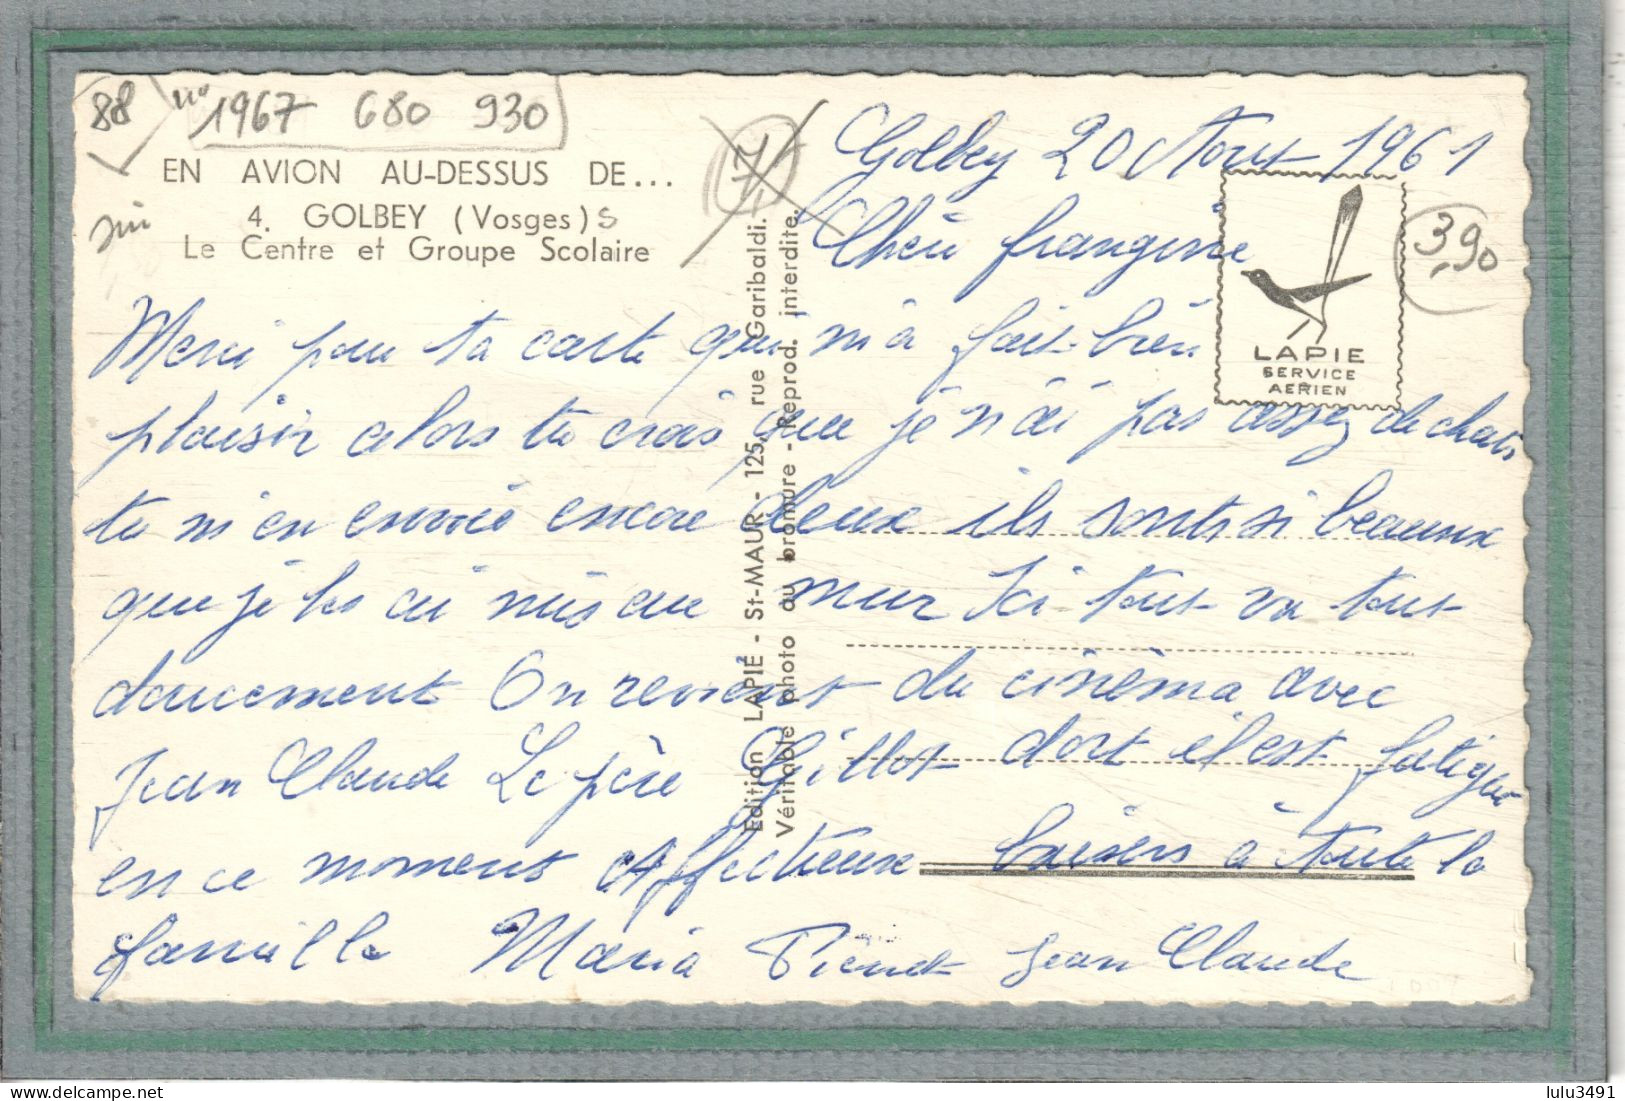 88
n° 1967 680 930
EN AVION AU-DESSUS DE...
4. GOLBEY (Vosges) S
Le Centre et Groupe Scolaire
3,90
Golbey 20 Aout 1961
Chèii frangine
Merci pour ta carte qui m'a fait bien
plaisir alors tu crois que je n'ai pas assez de chats
tu m'en envoie encore deux ils sonts si beaux
que je les ai mis au mur Ici tout va tout
doucement On revient du cinèma avec
Jean Claude Le père Gillot dort il est fatigué
en ce moment Affectieux baisers à toute la
famille Maria Pierret Jean Claude
Edition LAPIE - St-MAUR - 125, rue Garibaldi.
Véritable photo au bromure - Reprod. interdite.
LAPIE
SERVICE
AERIEN
lulu3491